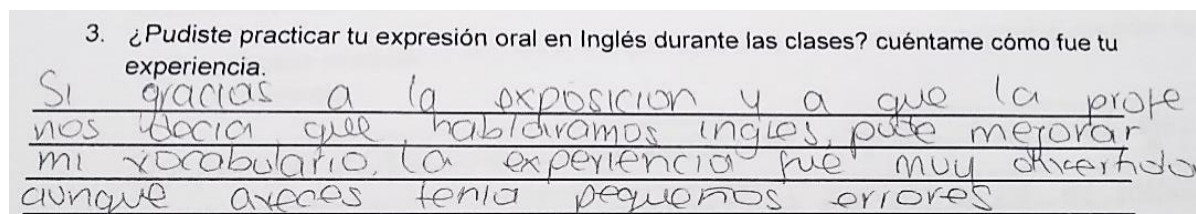 3. ¿Pudiste practicar tu expresión oral en Inglés durante las clases? cuéntame cómo fue tu
experiencia.
Si gracias a la exposicion y a que la profe
nos decia que hablaramos ingles, pude mejorar
mi vocabulario. La experiencia fue muy divertida
aunque aveces tenia pequeños errores